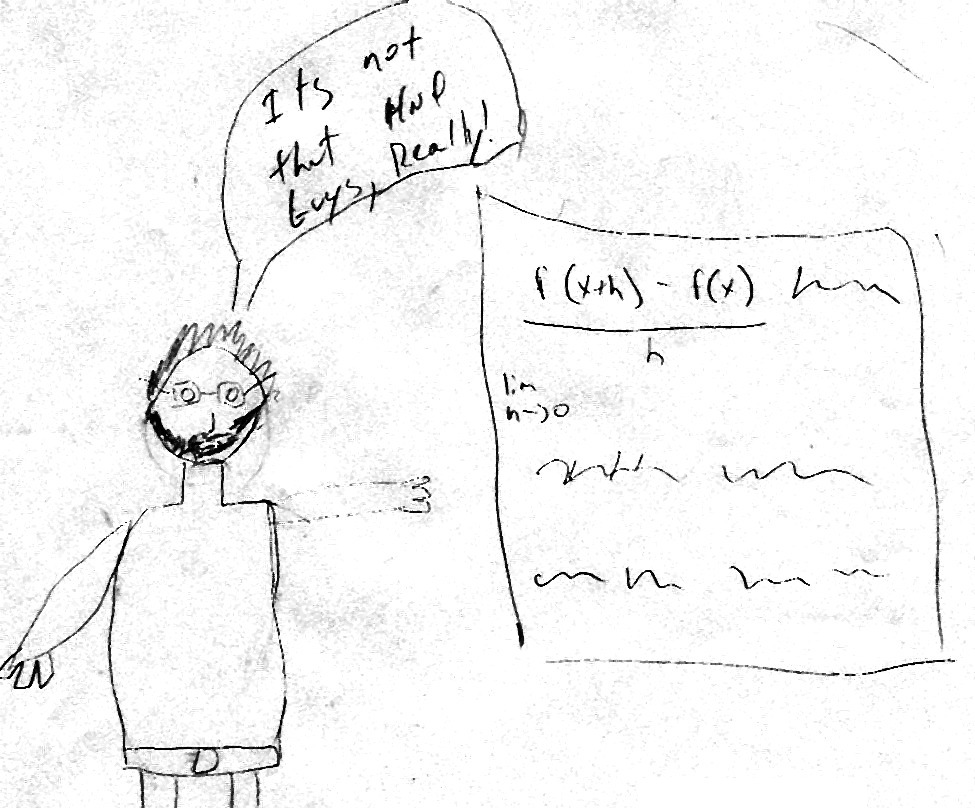 Its not
that
Guys, Really!
f(x+h) - f(x)
h
lim
h→0